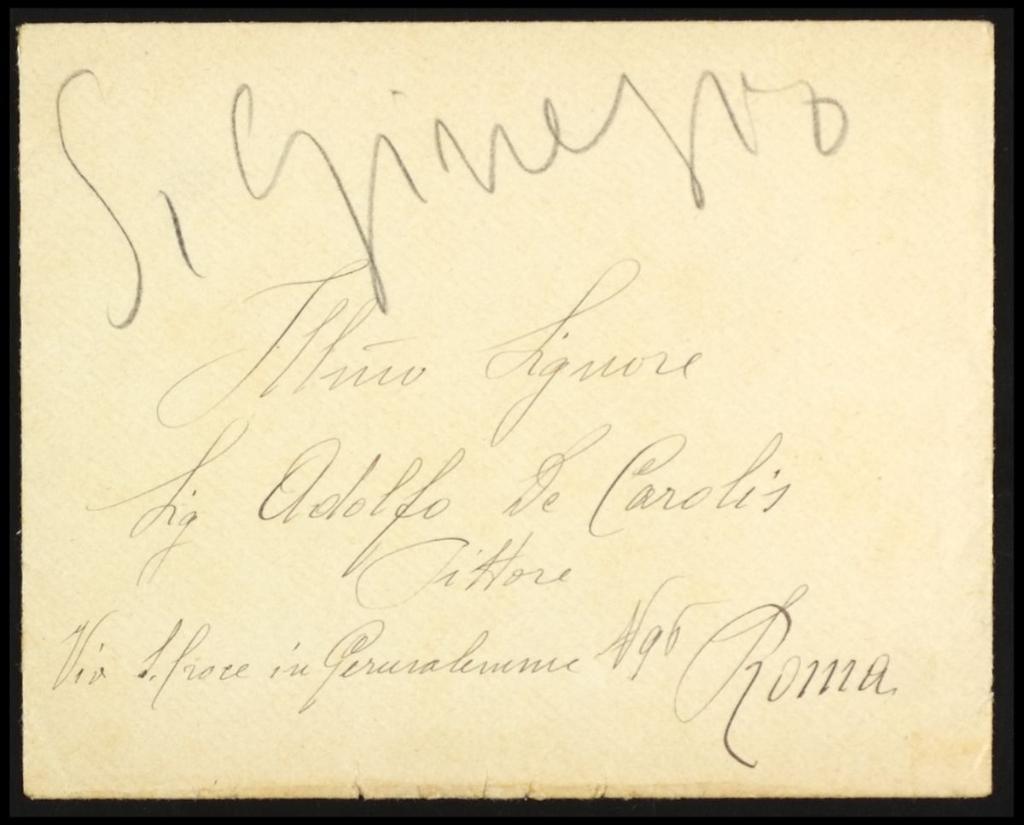 S. Ginesio
Illmo Signore
Sig Adolfo De Carolis
Pittore
Via S. Croce in Gerusalemme Roma